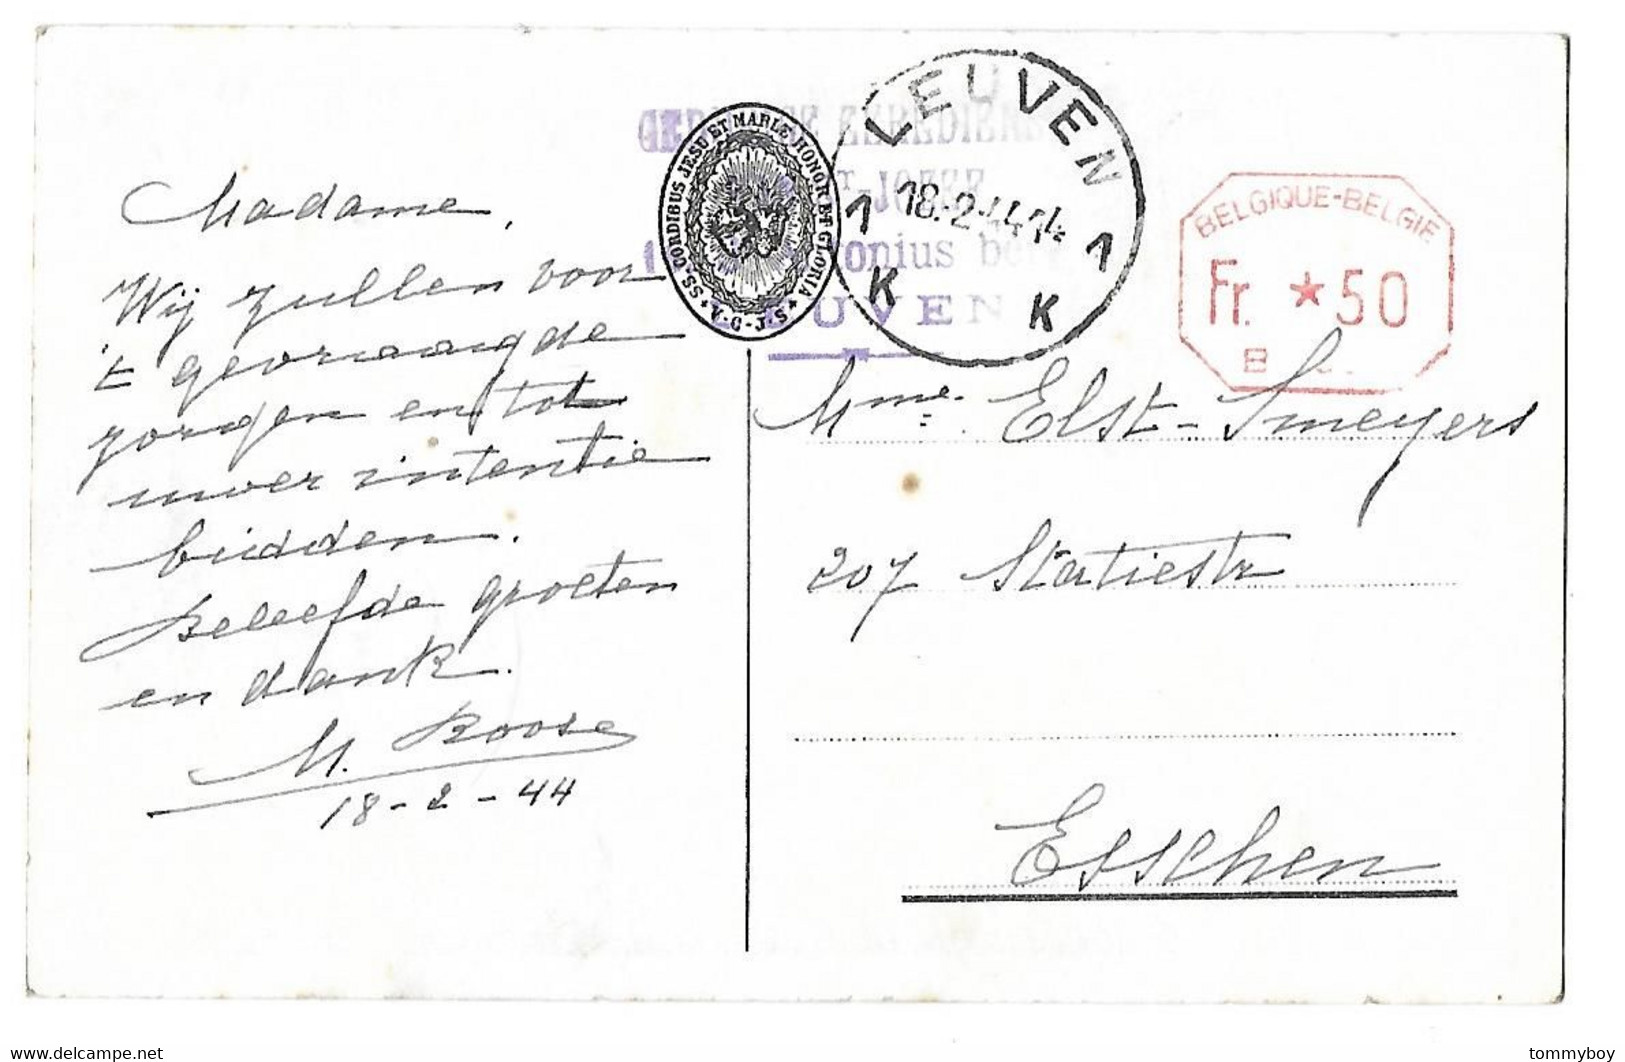 Madame,
Wij zullen voor
't gevraagde
zorgen en tot
uwer intentie
bidden.
Beleefde groeten
en dank.
M. Roose
18-2-44
SS. CORDIBUS JESU ET MARIÆ HONOR ET GLORIA
V.C.J.S.
EEREDIENS
T-JOZEF
onius ber
LEUVEN
LEUVEN
1 18.2-44 14 1
K K
BELGIQUE-BELGIË
Fr. ★50
B
Mme. Elst-Smeyers
207 Statiestr
Esschen
www.delcampe.net
tommyboy